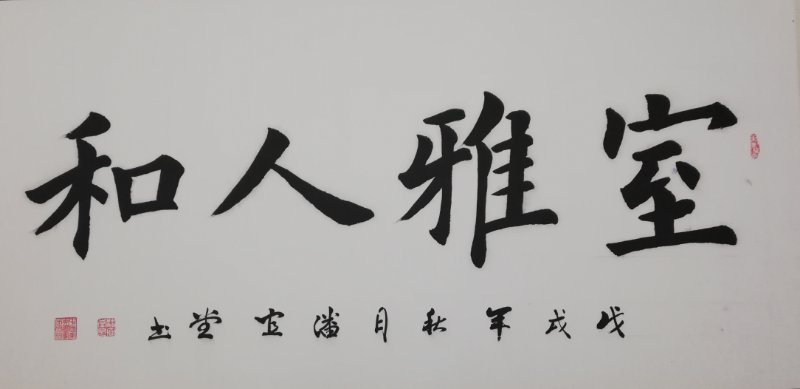 室雅人和
戊戌年秋月潘宜堂书